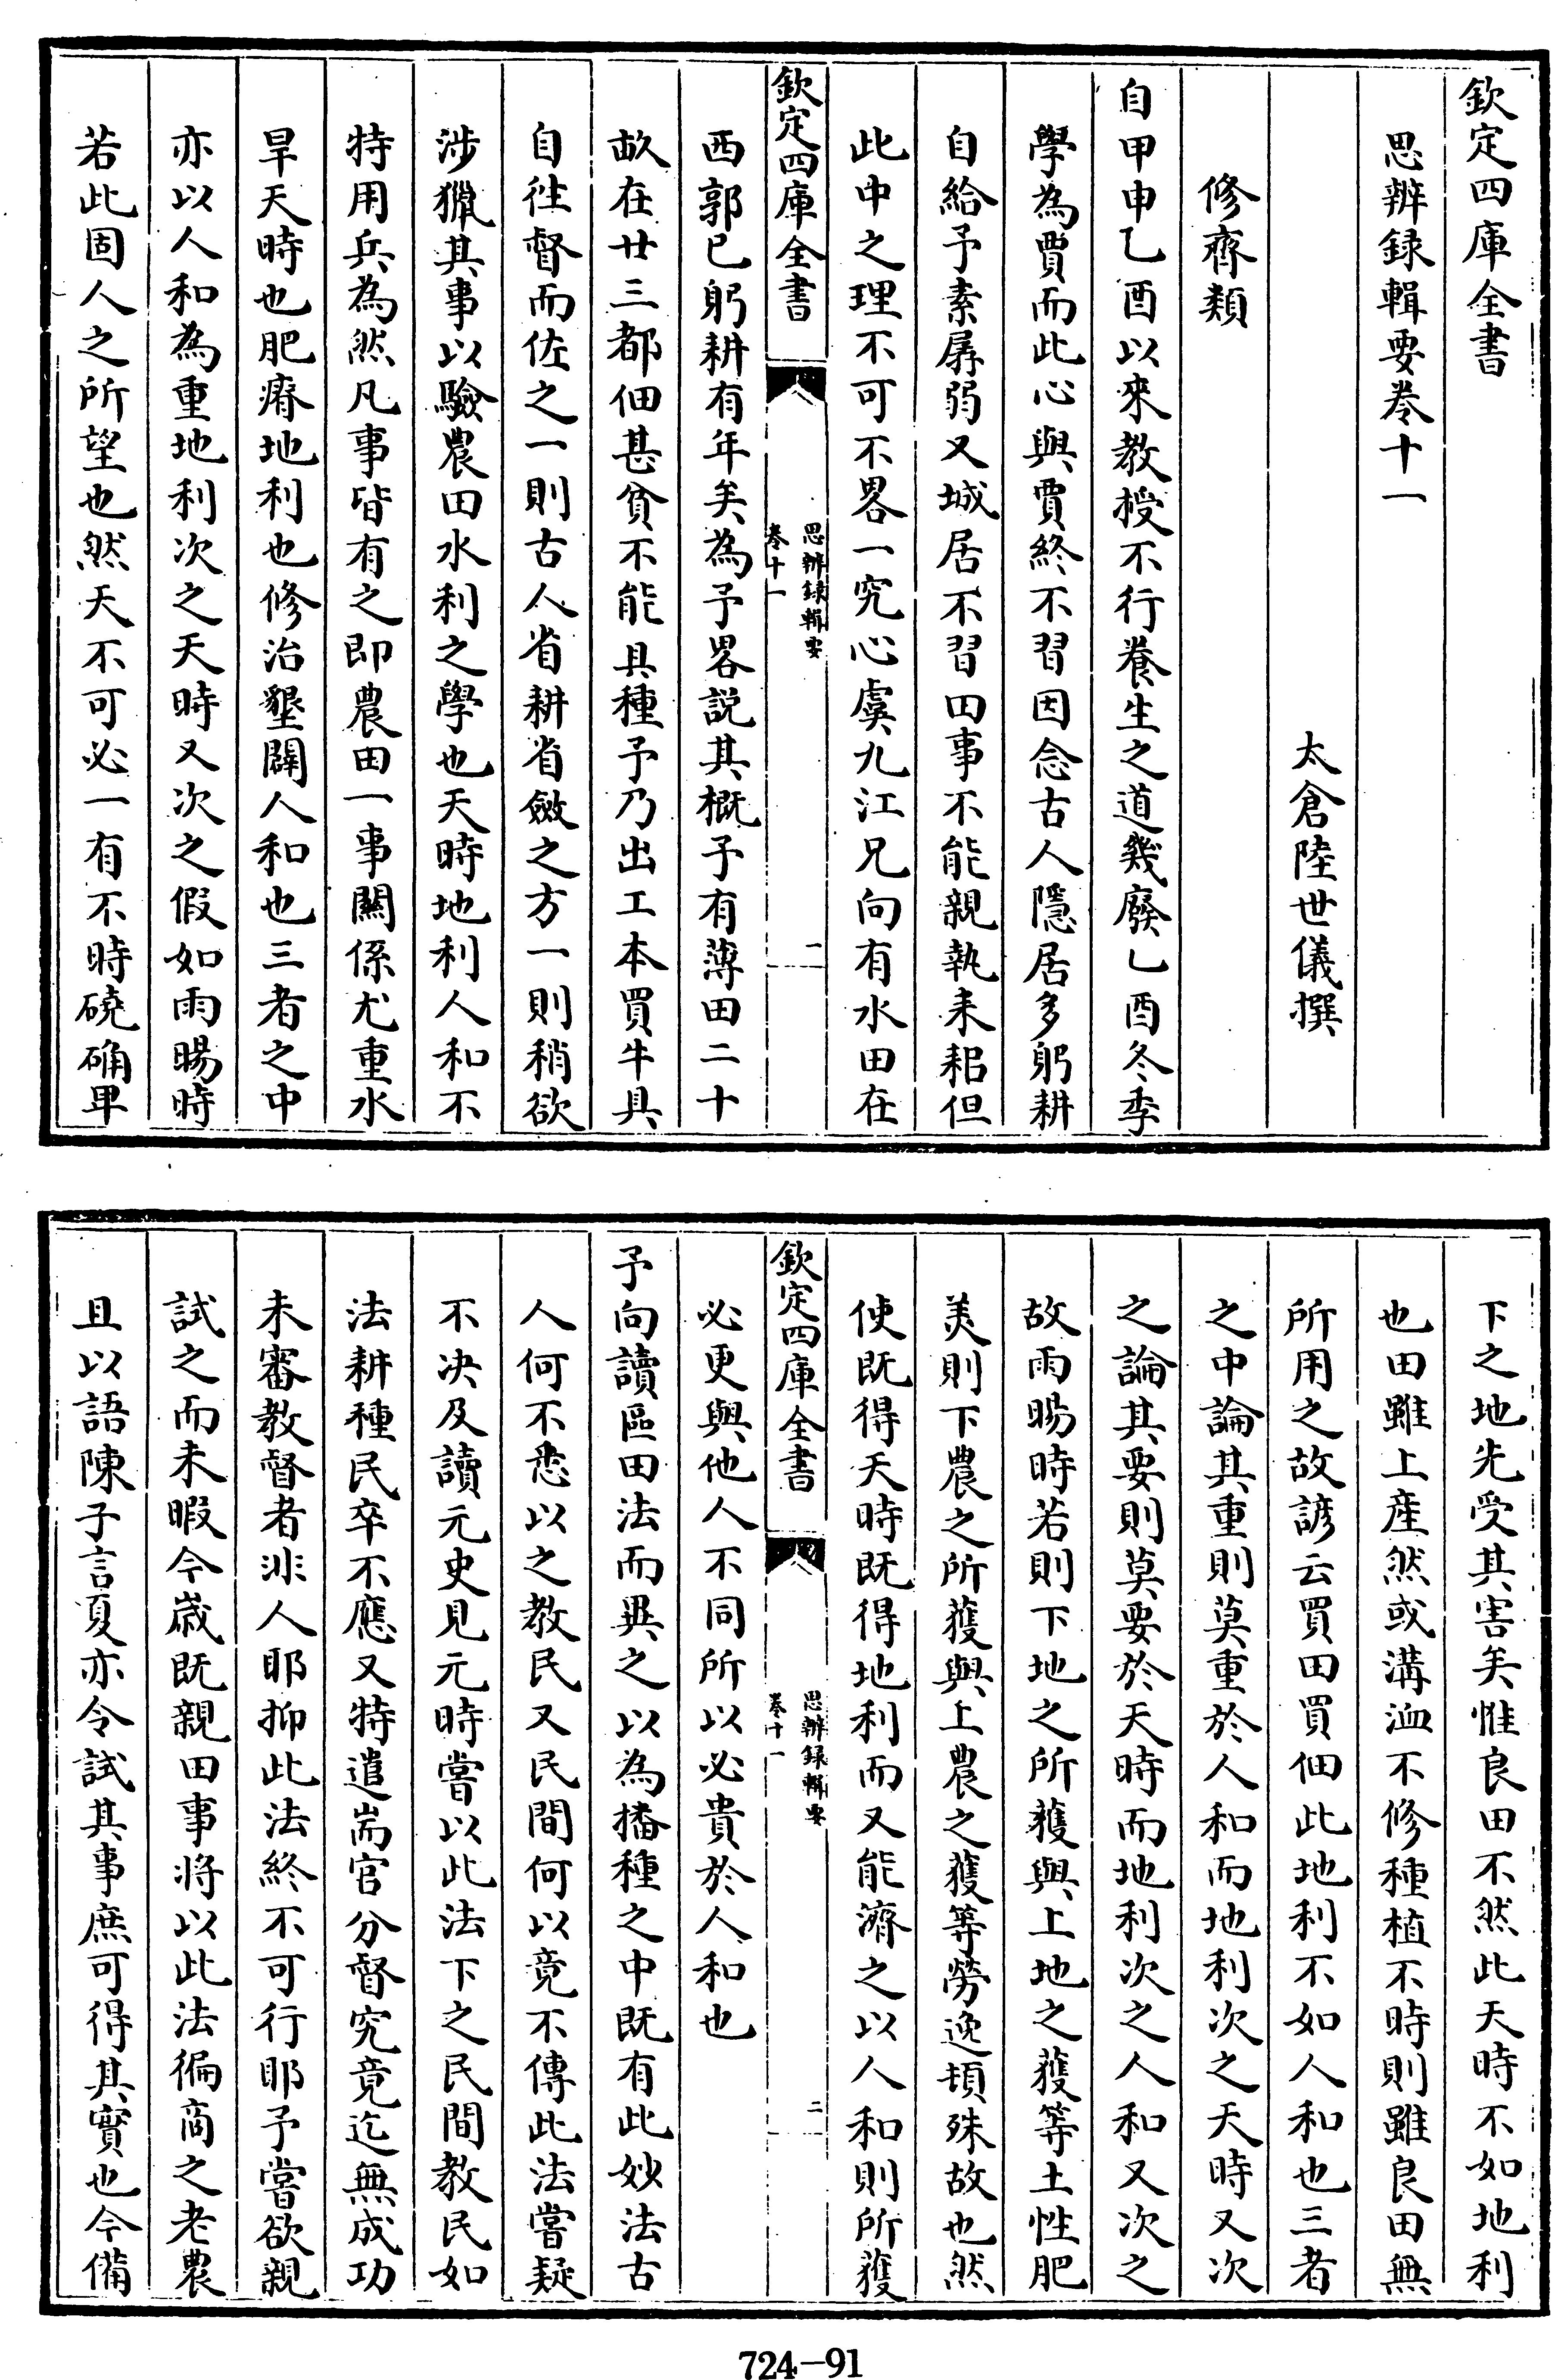 欽定四庫全書
思辨録輯要卷十一
太倉陸世儀撰
修齊類
自甲申乙酉以來教授不行養生之道幾廢乙酉冬季
學為賈而此心與賈終不習因念古人隱居多躬耕
自給予素孱弱又城居不習田事不能親執耒耜但
此中之理不可不畧一究心虞九江兄向有水田在
欽定四庫全書
思辨録輯要
卷十一
一
西郭已躬耕有年矣為予畧説其概予有薄田二十
畝在廿三都佃甚貧不能具種予乃出工本買牛具
自徃督而佐之一則古人省耕省斂之方一則稍欲
涉獵其事以驗農田水利之學也天時地利人和不
特用兵為然凡事皆有之即農田一事關係尤重水
旱天時也肥瘠地利也修治墾闢人和也三者之中
亦以人和為重地利次之天時又次之假如雨暘時
若此固人之所望也然天不可必一有不時磽确卑
下之地先受其害矣惟良田不然此天時不如地利
也田雖上産然或溝洫不修種植不時則雖良田無
所用之故諺云買田買佃此地利不如人和也三者
之中論其重則莫重於人和而地利次之天時又次
之論其要則莫要於天時而地利次之人和又次之
故雨暘時若則下地之所獲與上地之獲等土性肥
美則下農之所獲與上農之獲等勞逸頓殊故也然
使既得天時既得地利而又能濟之以人和則所獲
欽定四庫全書
思辨録輯要
卷十一
二
必更與他人不同所以必貴於人和也
予向讀區田法而異之以為播種之中既有此妙法古
人何不悉以之教民又民間何以竟不傳此法嘗疑
不决及讀元史見元時嘗以此法下之民間教民如
法耕種民卒不應又特遣耑官分督究竟迄無成功
未審教督者非人耶抑此法終不可行耶予嘗欲親
試之而未暇今歳既親田事將以此法徧商之老農
且以語陳子言夏亦令試其事庶可得其實也今備
724-91